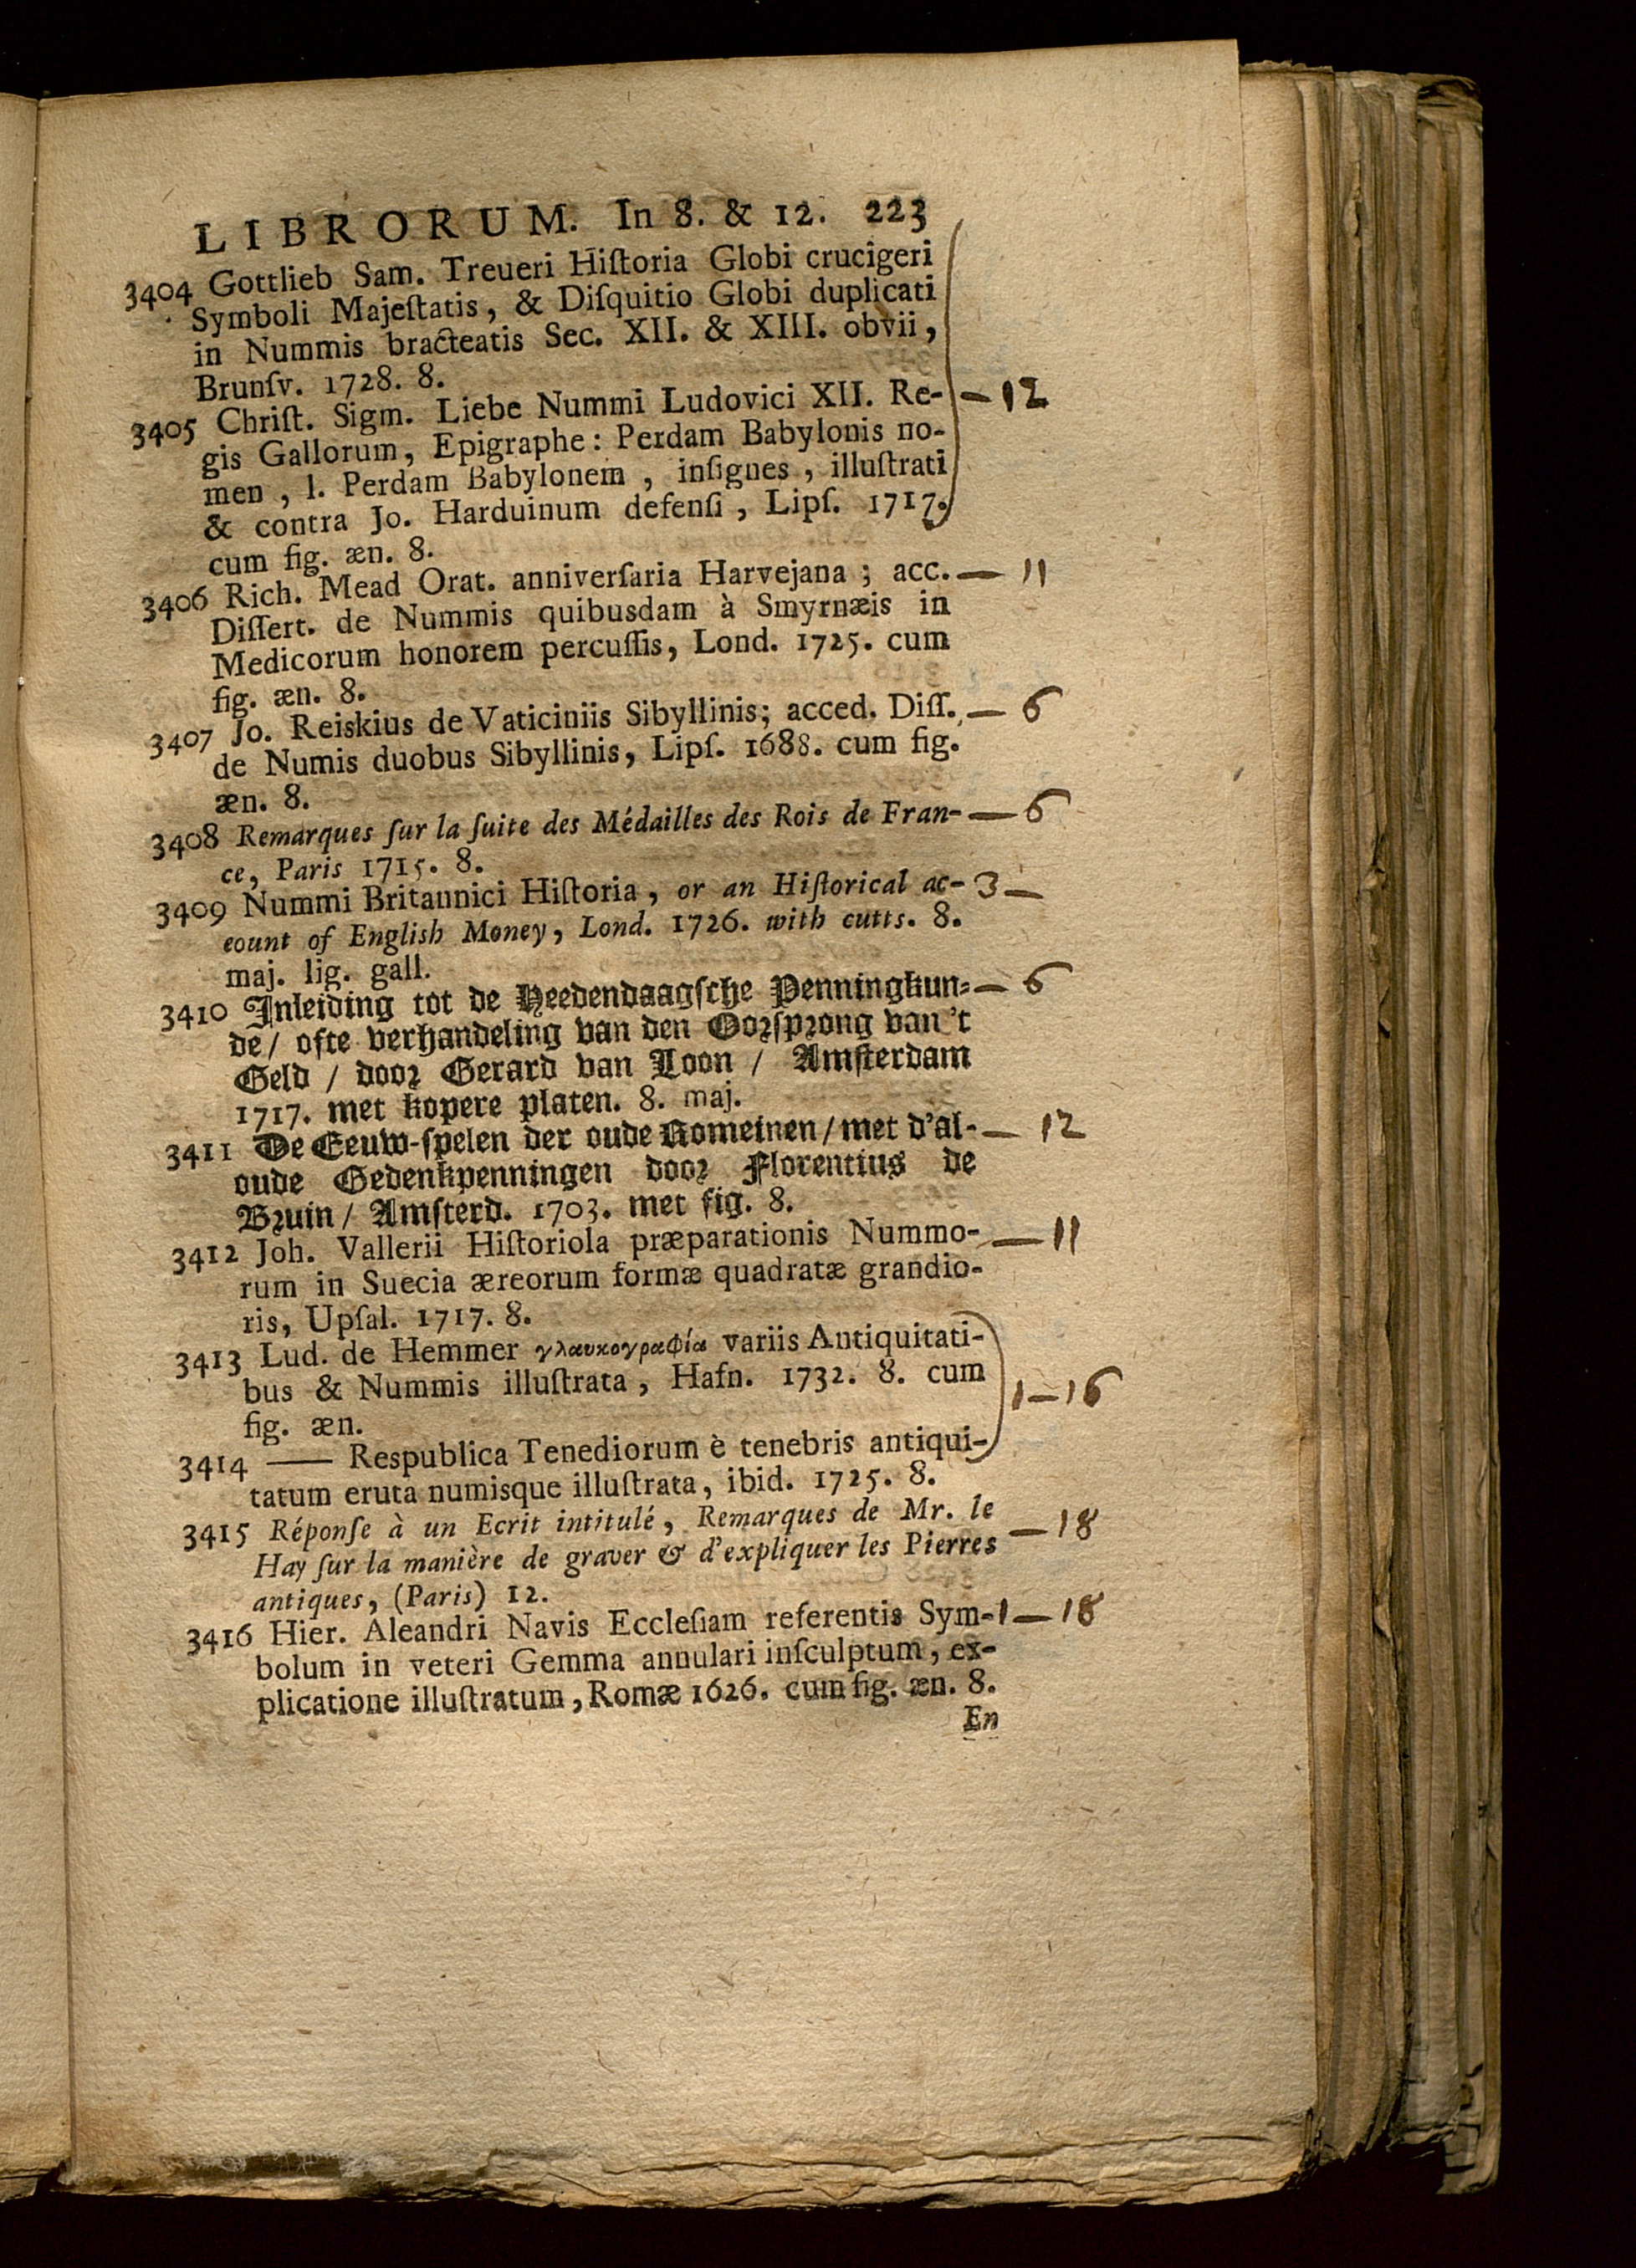 LIBRORUM. In 8. & 12. 223
3404 Gottlieb Sam. Treueri Hiſtoria Globi crucigeri
Symboli Majeſtatis, & Diſquitio Globi duplicati
in Nummis bracteatis Sec. XII. & XIII. obvii,
Brunſv. 1728. 8.
3405 Chriſt. Sigm. Liebe Nummi Ludovici XII. Re- — 12
gis Gallorum, Epigraphe: Perdam Babylonis no-
men, l. Perdam Babylonem, inſignes, illuſtrati
& contra Jo. Harduinum defenſi, Lipſ. 1717.
cum fig. æn. 8.
3406 Rich. Mead Orat. anniverſaria Harvejana; acc. — 11
Diſſert. de Nummis quibusdam à Smyrnæis in
Medicorum honorem percuſſis, Lond. 1725. cum
fig. æn. 8.
3407 Jo. Reiskius de Vaticiniis Sibyllinis; acced. Diſſ. — 6
de Numis duobus Sibyllinis, Lipſ. 1688. cum fig.
æn. 8.
3408 Remarques ſur la ſuite des Médailles des Rois de Fran- — 6
ce, Paris 1715. 8.
3409 Nummi Britannici Hiſtoria, or an Hiſtorical ac- 3 —
eount of English Money, Lond. 1726. with cutts. 8.
maj. lig. gall.
3410 Inleiding tot de Heedendaagſche Penningkun- — 6
de / ofte verhandeling van den Oorſprong van 't
Geld / door Gerard van Loon / Amſterdam
1717. met kopere platen. 8. maj.
3411 De Eeuw-ſpelen der oude Romeinen / met d'al- — 12
oude Gedenkpenningen door Florentius de
Bruin / Amſterd. 1703. met fig. 8.
3412 Joh. Vallerii Hiſtoriola præparationis Nummo- — 11
rum in Suecia æreorum formæ quadratæ grandio-
ris, Upſal. 1717. 8.
3413 Lud. de Hemmer γλαυκογραφία variis Antiquitati-
bus & Nummis illuſtrata, Hafn. 1732. 8. cum 1 — 16
fig. æn.
3414 —— Respublica Tenediorum è tenebris antiqui-
tatum eruta numisque illuſtrata, ibid. 1725. 8.
3415 Réponſe à un Ecrit intitulé, Remarques de Mr. le — 18
Hay ſur la manière de graver & d'expliquer les Pierres
antiques, (Paris) 12.
3416 Hier. Aleandri Navis Eccleſiam referentis Sym- 1 — 18
bolum in veteri Gemma annulari inſculptum, ex-
plicatione illuſtratum, Romæ 1626. cum fig. æn. 8.
En